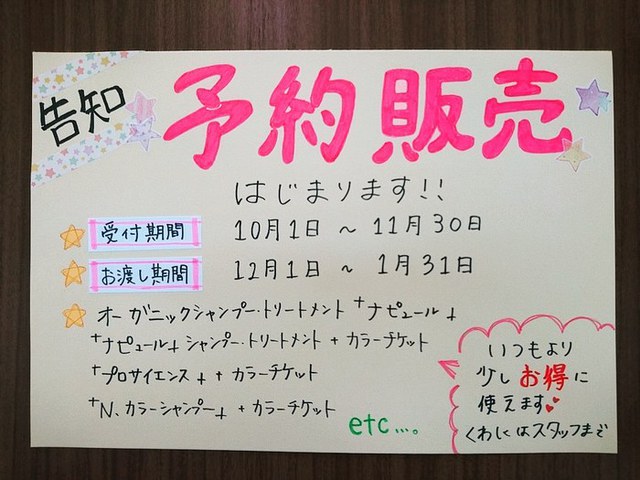 告知
予約販売
はじまります!!
受付期間 10月1日 ~ 11月30日
お渡し期間 12月1日 ~ 1月31日
オーガニックシャンプー・トリートメント "ナピュール"
"ナピュール" シャンプー・トリートメント + カラーチケット
"プロサイエンス" + カラーチケット
"N. カラーシャンプー" + カラーチケット
etc...。
いつもより
少しお得に
使えます
くわしくはスタッフまで